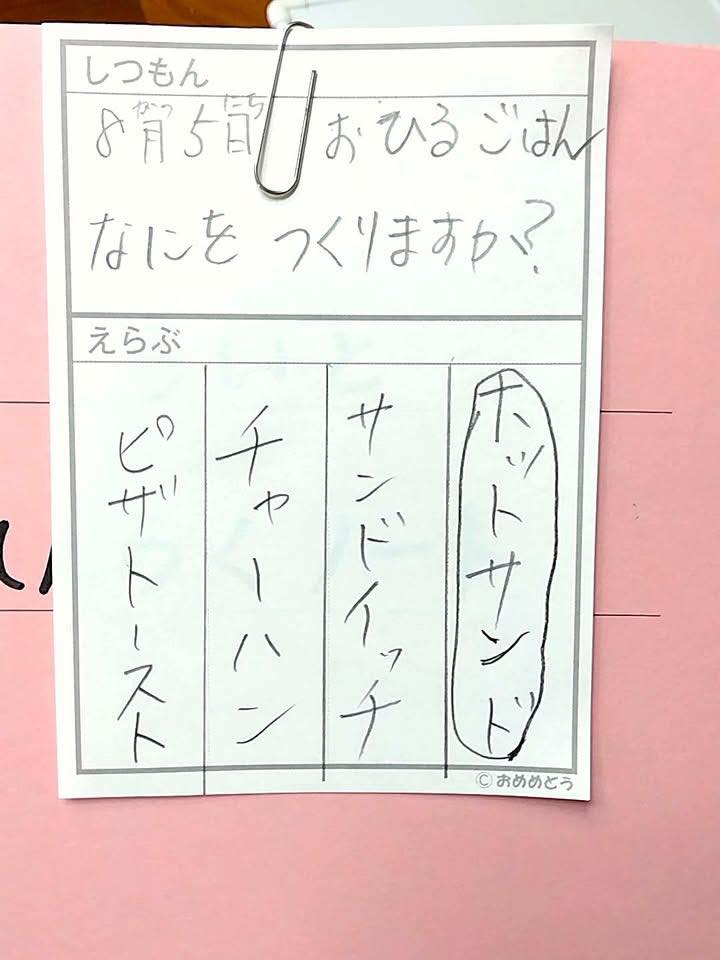 しつもん
8月5日 おひるごはん
がつ にち
なにを つくりますか?
えらぶ
ホットサンド
サンドイッチ
チャーハン
ピザトースト
©おめめどう